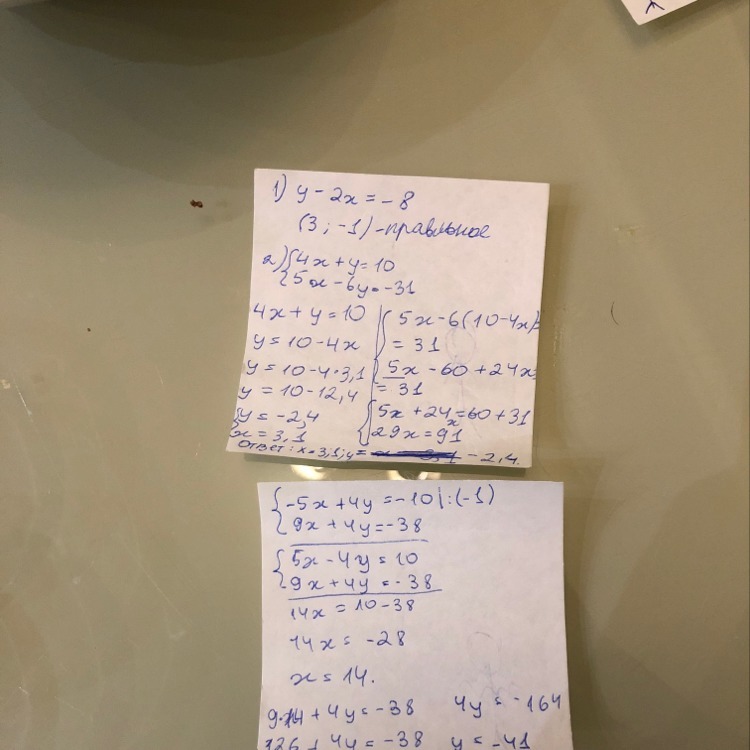 1) y - 2x = - 8
(3 ; -1) - правльное
2) { 4x + y = 10
{ 5x - 6y = -31
4x + y = 10
y = 10 - 4x
y = 10 - 4 · 3,1
y = 10 - 12,4
{ y = -2,4
{ x = 3,1
{ 5x - 6(10 - 4x) =
= 31
{ 5x - 60 + 24x =
= 31
{ 5x + 24x = 60 + 31
{ 29x = 91
Ответ: x = 3,1; y = -2,4.
{ -5x + 4y = -10 | : (-1)
{ 9x + 4y = -38
{ 5x - 4y = 10
{ 9x + 4y = -38
14x = 10 - 38
14x = -28
x = 14.
9·14 + 4y = -38
126 + 4y = -38
4y = -164
y = -41